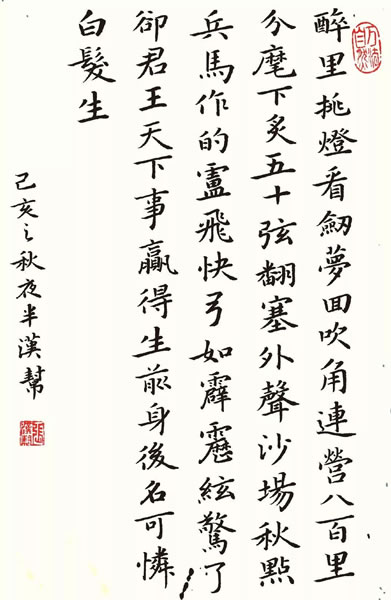 醉里挑燈看劒夢回吹角連營八百里
分麾下炙五十弦翻塞外聲沙場秋點
兵馬作的盧飛快弓如霹靂絃驚了
卻君王天下事贏得生前身後名可憐
白髮生
己亥之秋夜半漢幫